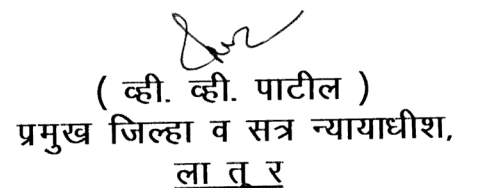 ( व्ही. व्ही. पाटील )
प्रमुख जिल्हा व सत्र न्यायाधीश,
ला तू र